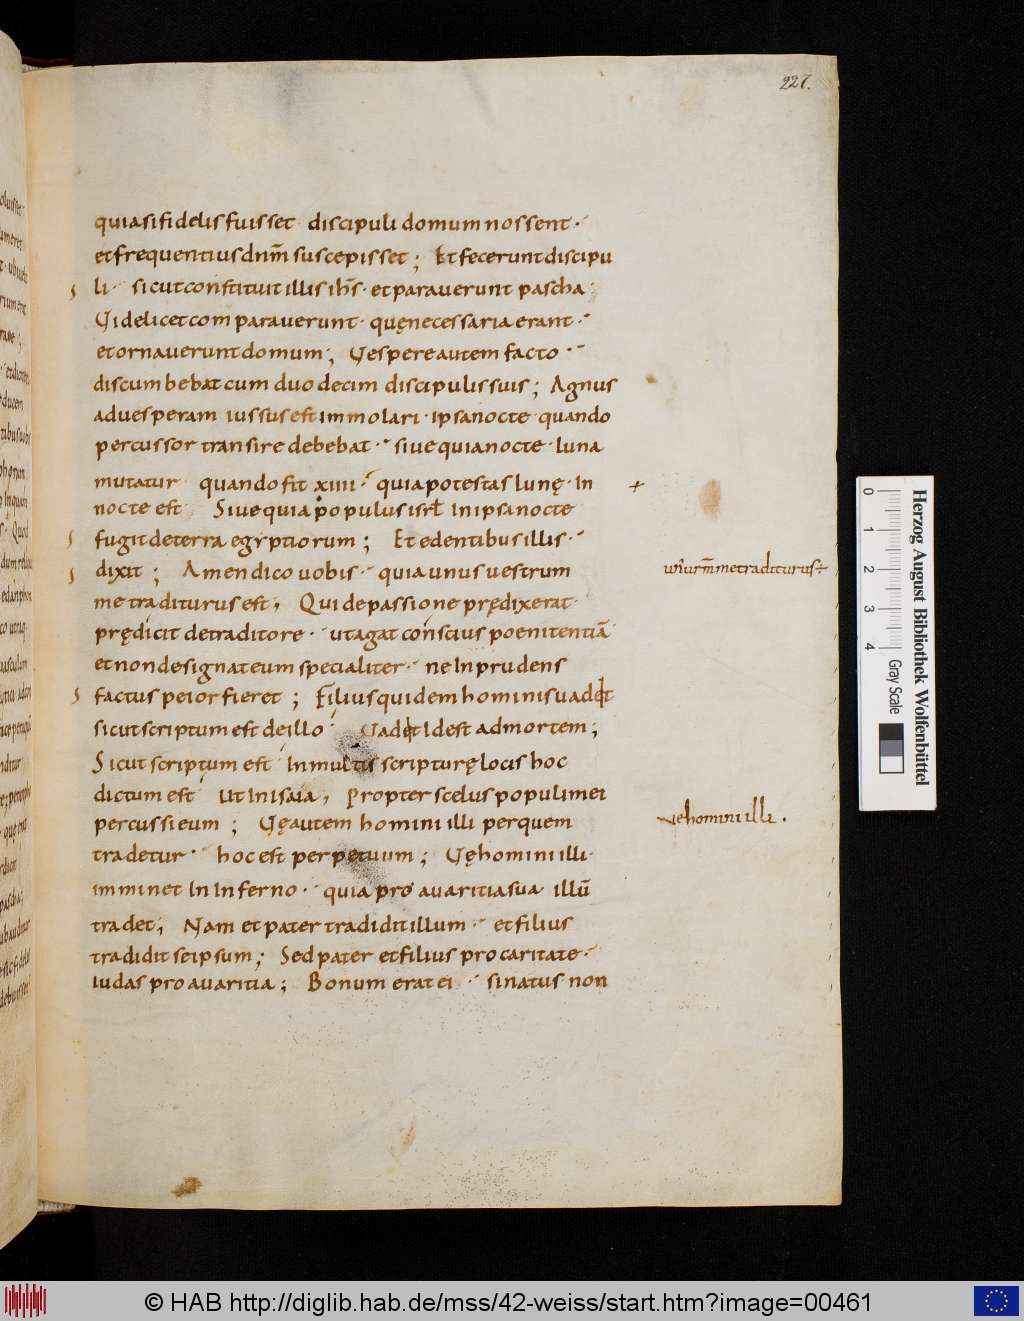 227.
quia si fidelis fuisset discipuli domum nossent ·
et frequentius dnm̄ suscepisset ; Et fecerunt discipu
li · sicut constituit illis ih̄s · et parauerunt pascha ·
Videlicet comparauerunt · quę necessaria erant ·
et ornauerunt domum ; Vespere autem facto ·
discumbebat cum duodecim discipulis suis ; Agnus
ad uesperam iussus est immolari · ipsa nocte quando
percussor transire debebat · siue quia nocte · luna
mutatur quando fit xiiii · quia potestas lunę · In
nocte est Siue quia populus isrł In ipsa nocte
fugit de terra egyptiorum ; Et edentibus illis ·
dixit ; Amen dico uobis · quia unus uestrum
me traditurus est , Qui de passione prędixerat
prędicit de traditore · ut agat conscius poenitentiā
et non designat eum specialiter · ne Inprudens
factus peior fieret ; Filius quidem hominis uadet
sicut scriptum est de illo Vadet Id est ad mortem ;
Sicut scriptum est In multis scripturę locis hoc
dictum est Ut In isaia , Propter scelus populi mei
percussi eum ; Vę autem homini illi per quem
tradetur · hoc est perpetuum ; Vę homini illi ·
imminet In Inferno · quia pro auaritia sua illū
tradet , Nam et pater tradidit illum · et filius
tradidit se ipsum ; Sed pater et filius pro caritate ·
iudas pro auaritia ; Bonum erat ei · si natus non
me traditurus
ve homini illi .
Herzog August Bibliothek Wolfenbüttel
0 1 2 3 4
Gray Scale
© HAB http://diglib.hab.de/mss/42-weiss/start.htm?image=00461